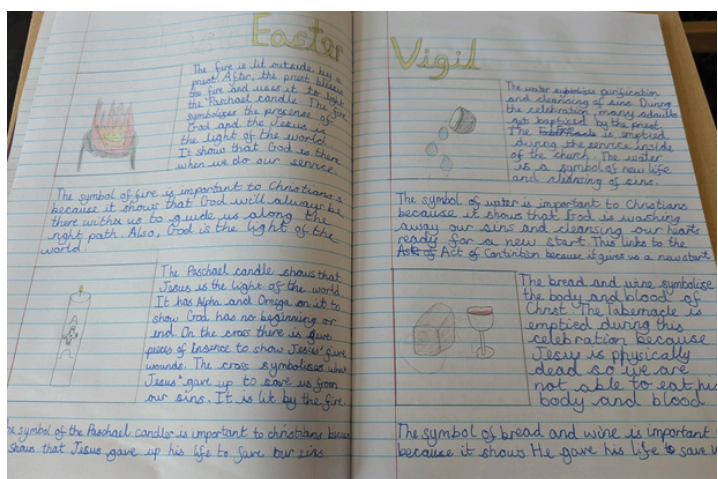 Easter Vigil
The fire is lit outside by a
priest. After, the priest blesses
the fire and uses it to light
the Paschael candle. The fire
symbolizes the presence of
God and the Jesus is
the light of the world
It shows that God is there
when we do our service.
The symbol of fire is important to Christians
because it shows that God will always be
there with us to guide us along the
right path. Also, God is the light of the
world.
The Paschael candle shows that
Jesus is the light of the world
It has Alpha and Omega on it to
show God has no beginning or
end. On the cross there is five
pieces of Insence to show Jesus' five
wounds. The cross symbolises what
Jesus' gave up to save us from
our sins. It is lit by the fire.
symbol of the Paschael candle is important to christians
shows that Jesus gave up his life to save our sins
The water symbolizes purification
and cleansing of sins. During
the celebration many adults
get baptied by the priest
The is emptied
during the service inside
of the church. The water
is a symbol of new life
and cleansing of sins.
The symbol of water is important to Christians
because it shows that God is washing
away our sins and cleansing our hearts
ready for a new start. This links to the
Act of Contrition because it gives us a new start
The bread and wine symbolise
the body and blood of
Christ. The Tabernacle is
emptied during this
celebration because
Jesus is physically
dead so we are
not able to eat his
body and blood.
The symbol of bread and wine is important
because it shows He gave his life to save